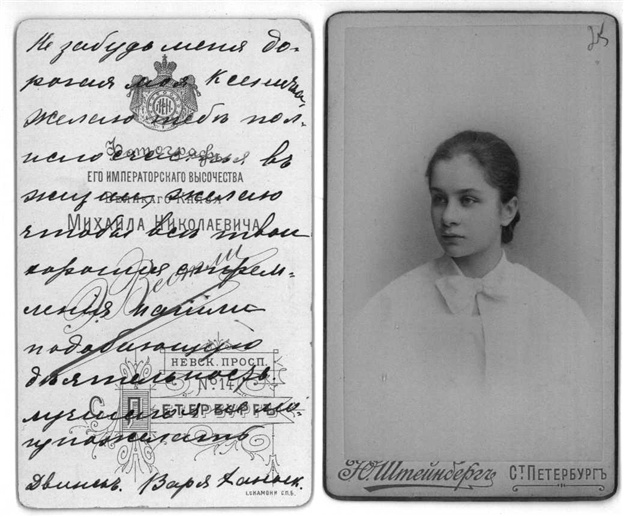 Не забудь меня до-
рогая моя Ксеничка,
желаю тебѣ пол-
наго счастья въ
жизни, желаю
чтобы всѣ твои
хорошія стрем-
ленія нашли
подобающую
дѣятельность
лучшаго не мо-
гу пожелать
Двинскъ. Варя
Фотографъ
ЕГО ИМПЕРАТОРСКАГО ВЫСОЧЕСТВА
ВЕЛИКАГО КНЯЗЯ
МИХАИЛА НИКОЛАЕВИЧА
НЕВСК. ПРОСП.
№ 14
С. ПЕТЕРБУРГЪ
СКАМОНИ СПБ.
Ю. Штейнбергъ С.Т ПЕТЕРБУРГЪ